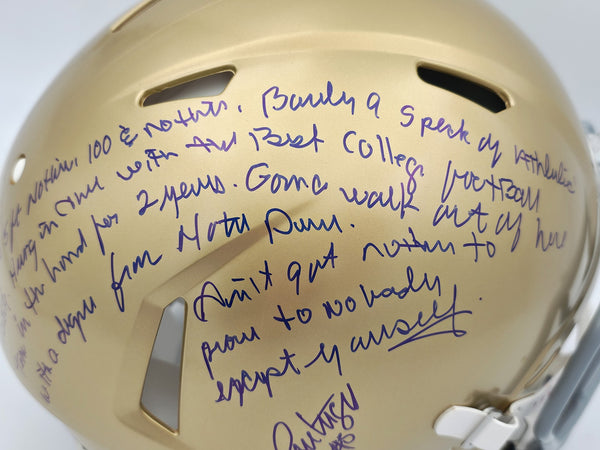 ft Nothin, 100 & Nothin. Barely a speck of Athletic
Hung in there with the Best College football
in the land for 2 years. Gonna walk out of here
with a degree from Notre Dame.
Ain't got nothin to
prove to nobody
except yourself.